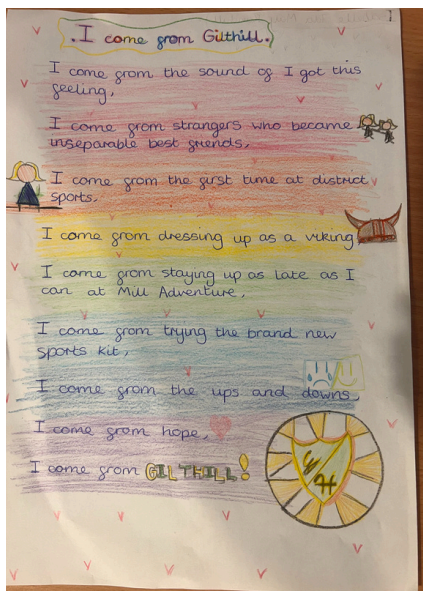 .I come from Gilthill.
I come from the sound of I got this
feeling,
I come from strangers who became
inseparable best friends,
I come from the first time at district
sports.
I come from dressing up as a viking
I come from staying up as late as I
can at Mill Adventure,
I come from trying the brand new
sports kit,
I come from the ups and downs,
I come from hope,
I come from GILTHILL!
G/H